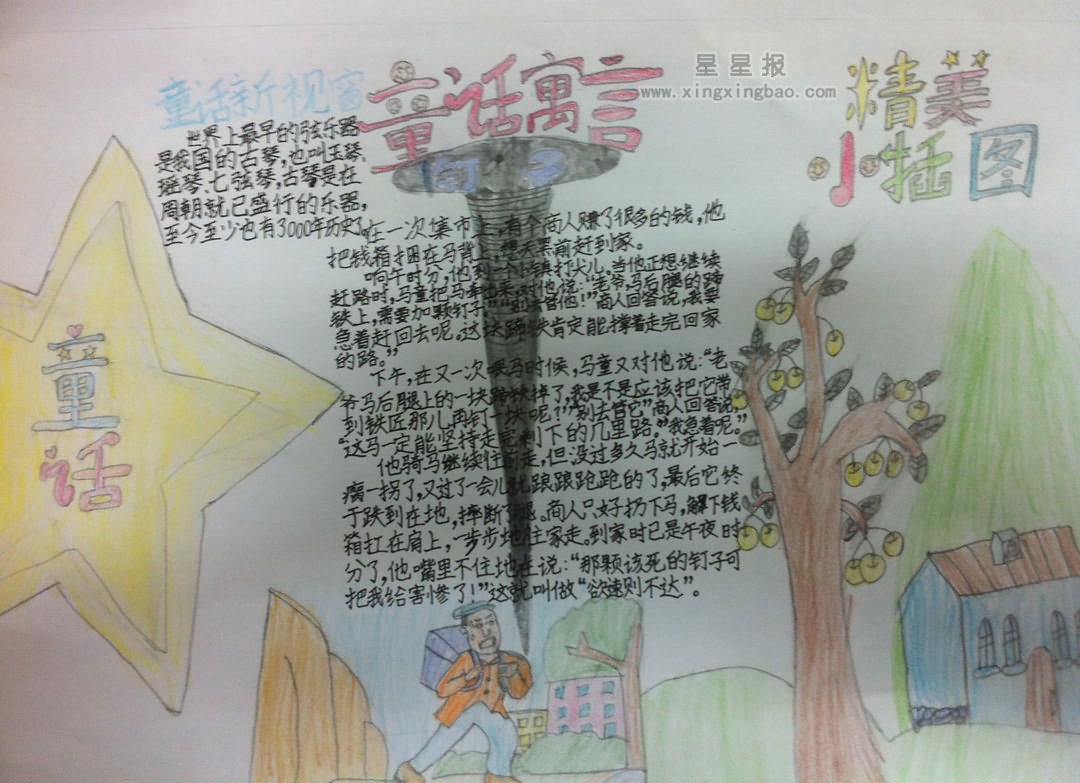 星星报
www.xingxingbao.com
童话新视窗
童话寓言
精美
小插图
世界上最早的弦乐器
是我国的古琴,也叫玉琴、
瑶琴、七弦琴,古琴是在
周朝就已盛行的乐器,
至今至少也有3000年历史了
钉子
在一次集市上,有个商人赚了很多的钱,他
把钱箱捆在马背上,想天黑前赶到家。
响午时分,他到一个小镇打尖儿。当他正想继续
赶路时,马童把马牵出来,对他说:“老爷,马后腿的蹄
铁上,需要加颗钉子”“别去管他!”商人回答说,我要
急着赶回去呢。这块蹄铁肯定能撑着走完回家
的路。”
下午,在又一次喂马时候,马童又对他说:“老
爷马后腿上的一块蹄铁掉了,我是不是应该把它带
到铁匠那儿再钉一块呢?”“别去管它”商人回答说,
“这马一定能坚持走完剩下的几里路。”我急着呢。”
他骑马继续往前走,但没过多久马就开始一
瘸一拐了,又过了一会儿就踉踉跄跄的了,最后它终
于跌到在地,摔断了腿。商人只好扔下马,解下钱
箱扛在肩上,一步步地往家走。到家时已是午夜时
分了,他嘴里不住地在说:“那颗该死的钉子可
把我给害惨了!”这就叫做“欲速则不达”。
童
话